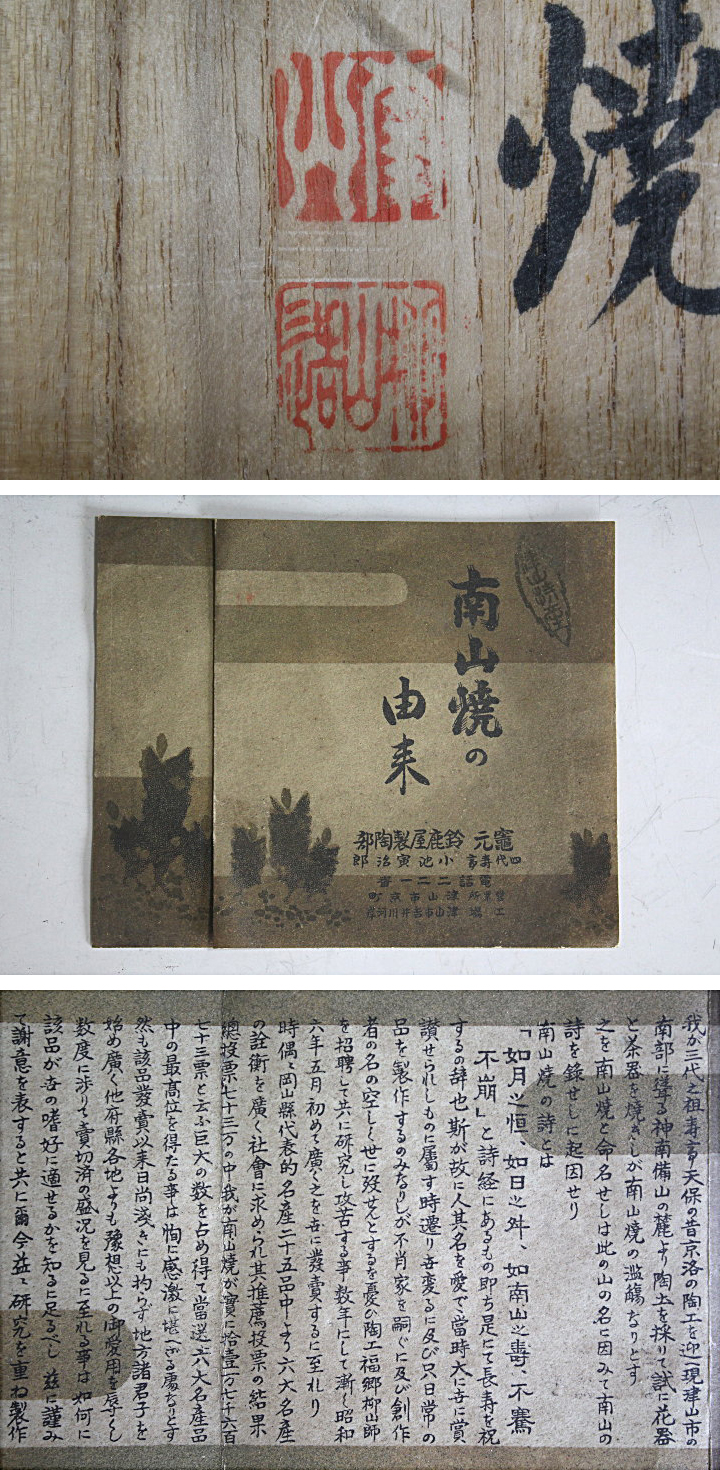 焼
南山焼の
由来
竈元 鈴鹿屋製陶部
四代壽富 小池寅治郎
電話二二一番
営業所 津山市京町
工場 津山市吉井川河岸
我が三代之祖寿富天保の昔京洛の陶工を迎へ現津山市の
南部に聳る神南備山の麓より陶土を採りて試に花器
と茶器を焼きしが南山焼の濫觴なりとす
之を南山焼と命名せしは此の山の名に因みて南山の
詩を錄せしに起因せり
南山焼の詩とは
「如月之恒、如日之舛、如南山之壽、不騫
不崩」と詩経にあるもの即ち是にて長寿を祝
するの辞也斯が故に人其名を愛で當時大に世に賞
讃せられしものに屬す時遷り世変るに及び只日常の
品を製作するのみなりしが不肖家を嗣ぐに及び創作
者の名の空しく世に歿せんとするを憂ひ陶工福郷柳山師
を招聘して共に研究し攻苦する事数年にして漸く昭和
六年五月初めて廣く之を世に發賣するに至れり
時偶〻岡山縣代表的名産二十五品中より六大名産
の詮衡を廣く社會に求められ其推薦投票の結果
總投票七十三万の中我が南山焼が實に拾壹万七千六百
七十三票と云ふ巨大の数を占め得て當選六大名産品
中の最高位を得たる事は洵に感激に堪へざる處なりとす
然も該品發賣以来日尚淺きにも拘らず地方諸君子を
始め廣く他府縣各地よりも豫想以上の御愛用を辱ふし
数度に渉りて賣切済の盛況を見るに至れる事は如何に
該品が世の嗜好に適せるかを知るに足るべし 茲に謹み
て謝意を表すると共に爾今益〻研究を重ね製作